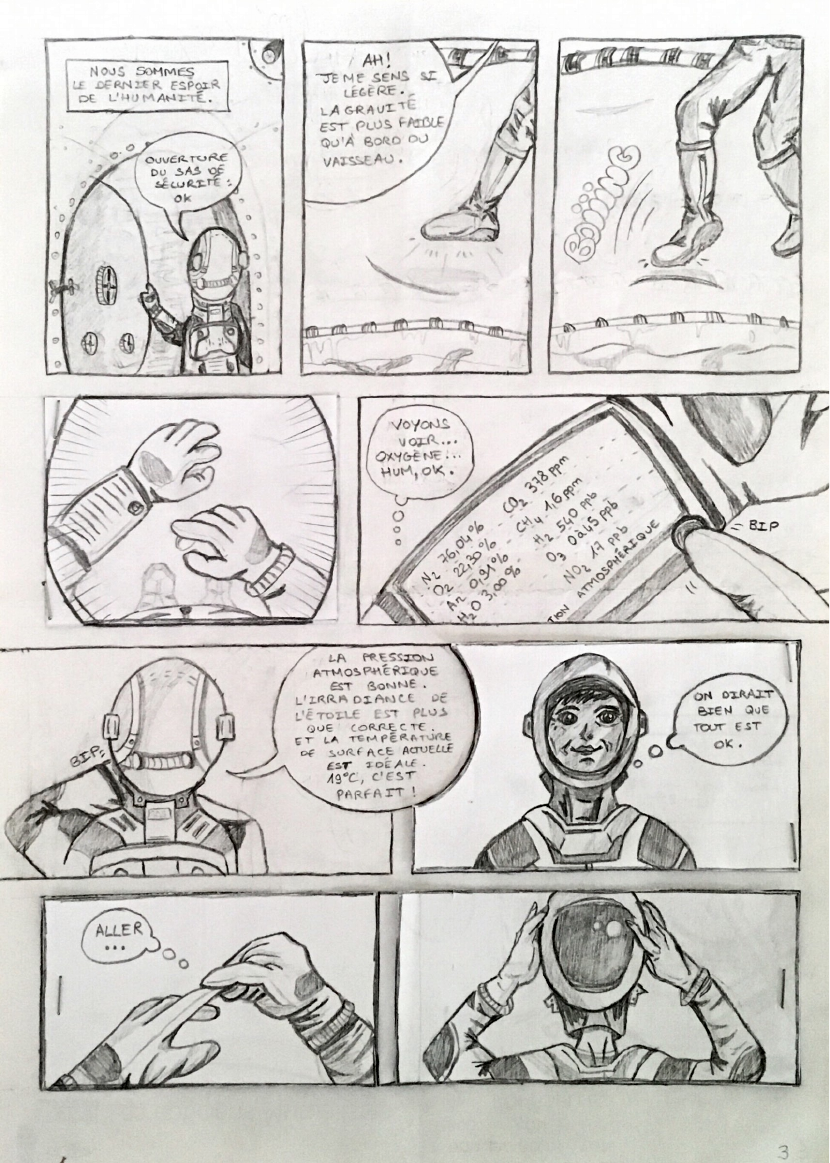 NOUS SOMMES
LE DERNIER ESPOIR
DE L'HUMANITÉ.
OUVERTURE
DU SAS DE
SÉCURITÉ :
OK
AH!
JE ME SENS SI
LÉGÈRE.
LA GRAVITÉ
EST PLUS FAIBLE
QU'À BORD DU
VAISSEAU.
BOÏÏÏNG
VOYONS
VOIR...
OXYGÈNE...
HUM, OK.
N2 76,04%
O2 22,30%
Ar 0,91%
H2O 3,00%
CO2 378 ppm
CH4 1,6 ppm
H2 540 ppb
O3 0à45 ppb
NO2 17 ppb
TION ATMOSPHÉRIQUE
BIP
BIP
LA PRESSION
ATMOSPHÉRIQUE
EST BONNE.
L'IRRADIANCE DE
L'ÉTOILE EST PLUS
QUE CORRECTE.
ET LA TEMPÉRATURE
DE SURFACE ACTUELLE
EST IDÉALE.
19°C, C'EST
PARFAIT !
ON DIRAIT
BIEN QUE
TOUT EST
OK.
ALLER
...
3